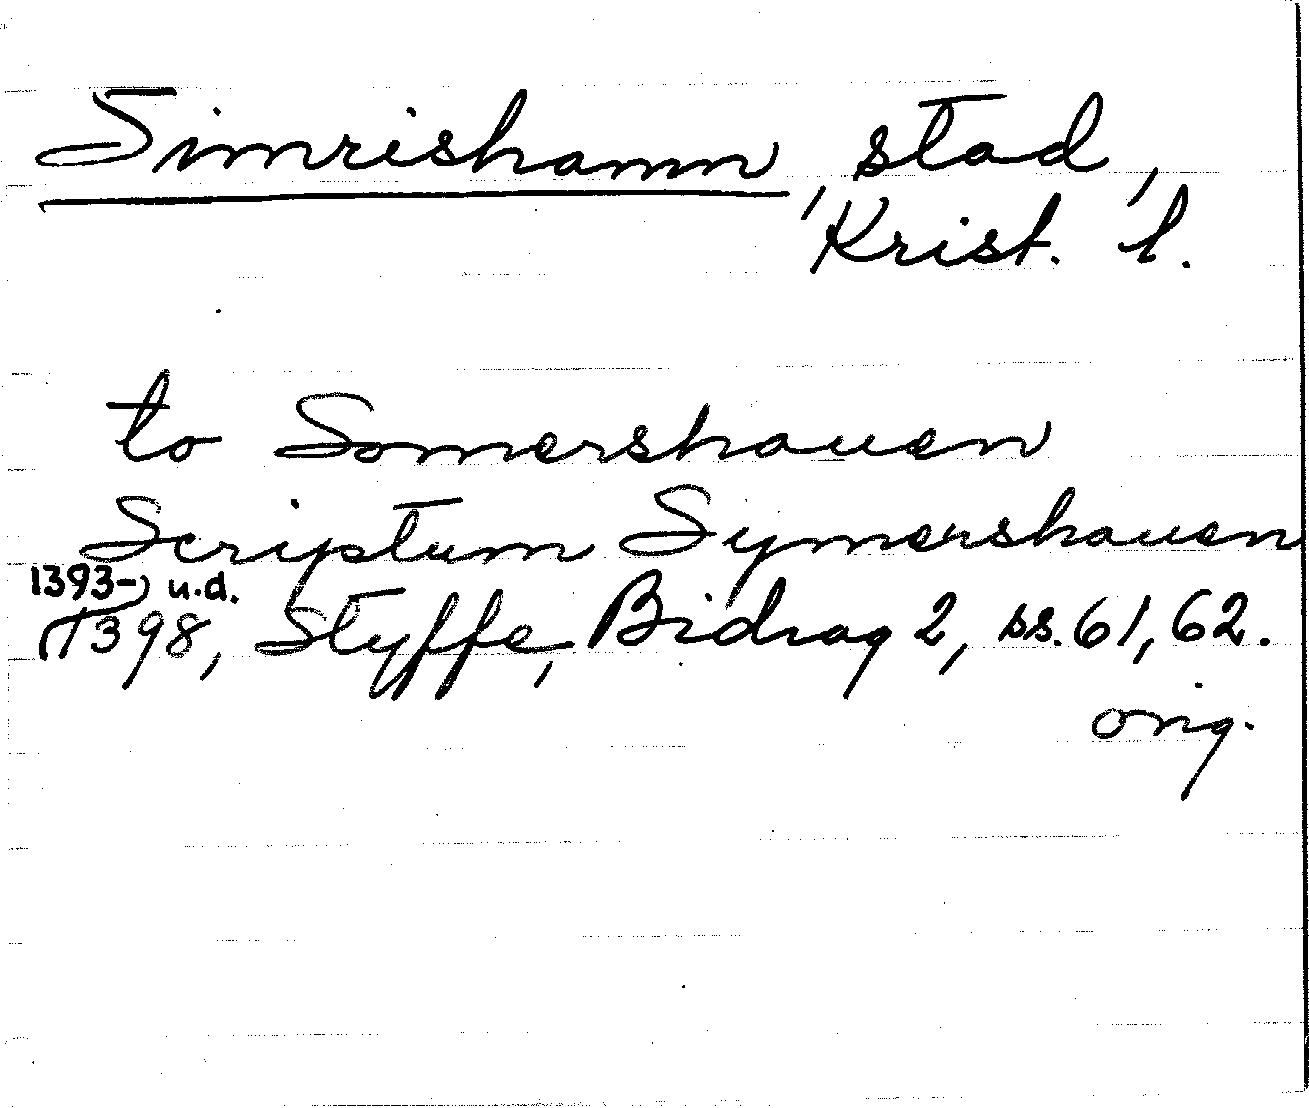 Simrishamn, stad,
Krist. l.
to Somershauen
Scriptum Symershauen
1393-) u.d.
(1398, Styffe, Bidrag 2, ss. 61, 62.
orig.